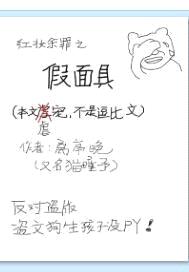 红妆余罪之
假面具
(本文完,不是逗比文)
虐
作者:
(又名猫)
反对盗版
盗文狗生孩子没PY!